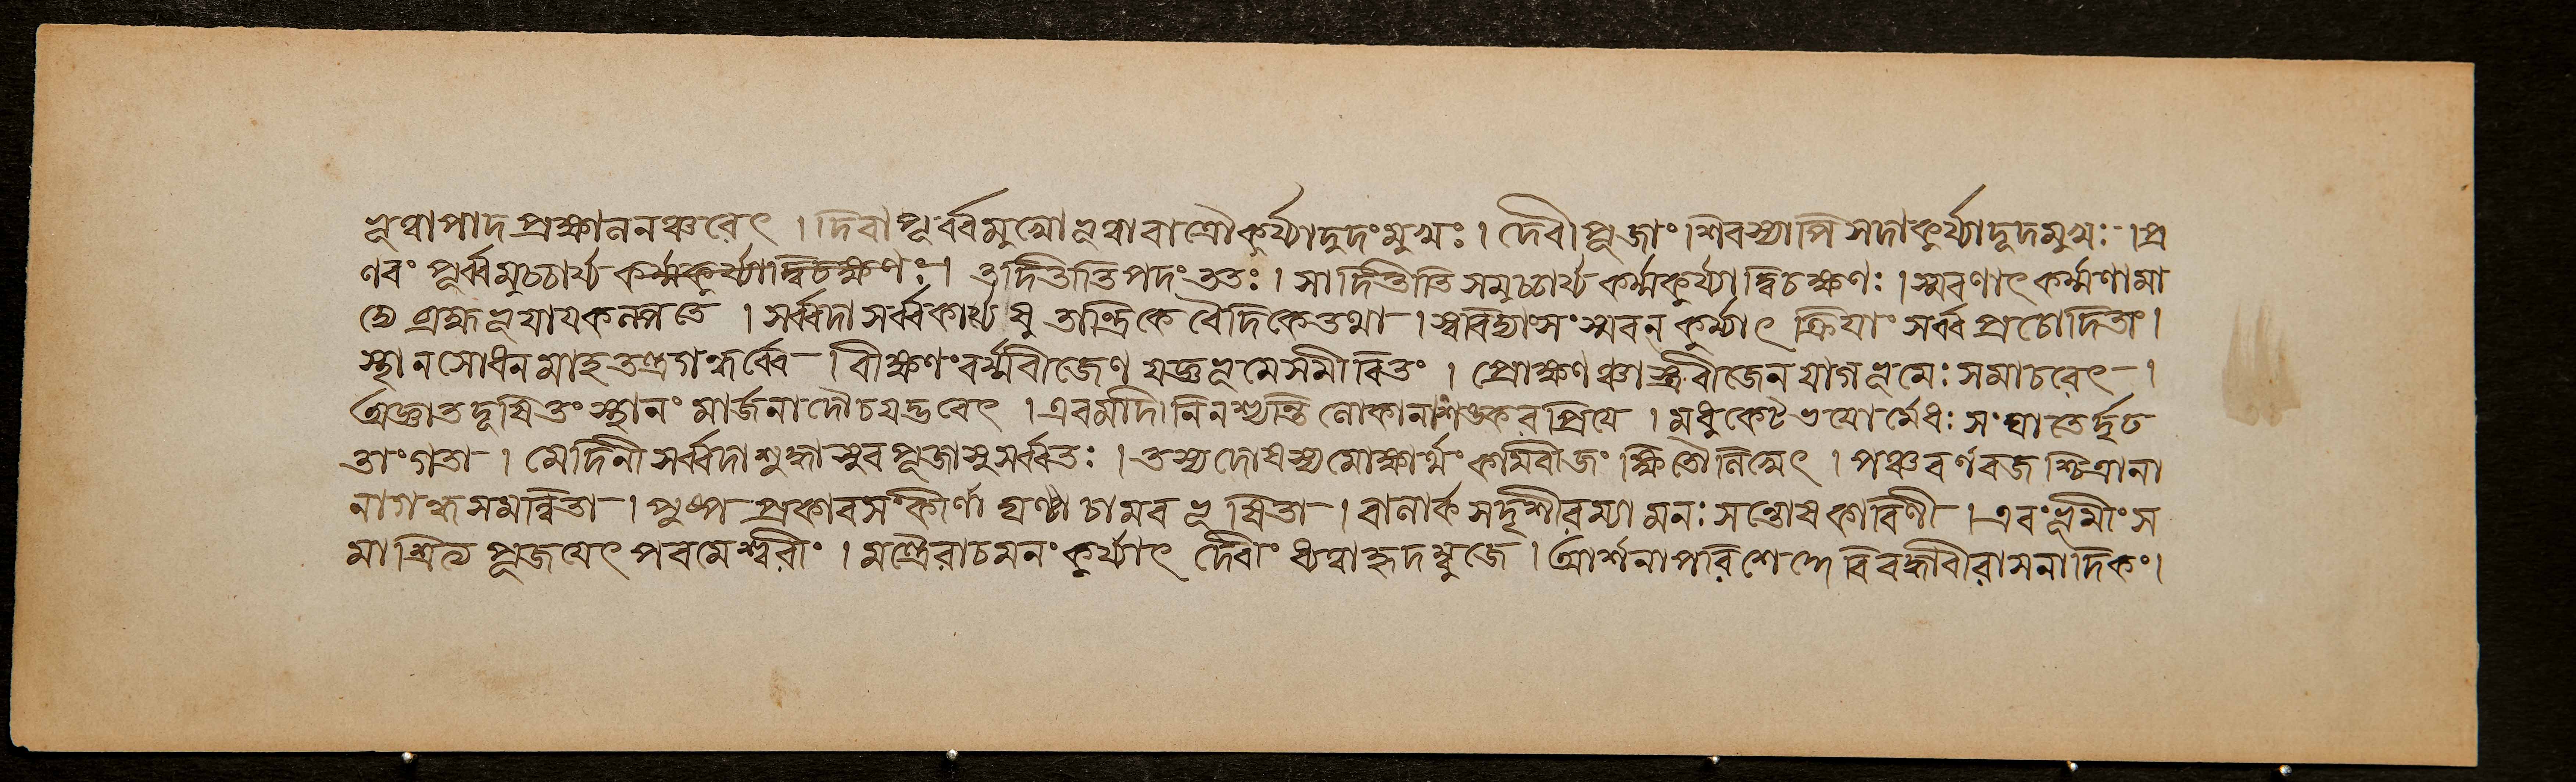 ভূত্বাপাদপ্রক্ষালনঞ্চরেৎ । দিবাপূর্ব্বমুখোভূত্বারাত্রৌকুর্য্যাদুদংমুখঃ । দেবীপূজাং।শিবস্যাপিসদাকুর্য্যাদুদমুখঃ ।প্র
ণবং পূর্ব্বমুচ্চার্য্য কর্ম্মকুর্য্যাদ্বিচক্ষণঃ । তদিতীতি পদং ততঃ । সাদিতীতি সমুচ্চার্য্য কর্ম্মকুর্য্যাদ্বিচক্ষণঃ ।স্মরণাৎ কর্ম্মণামা
দ্যে ব্রহ্মভূযাযকল্পতে । সর্ব্বদা সর্ব্বকার্য্যেষু তান্ত্রিকে বৈদিকেতথা । স্ববিদ্যাংসংস্মরন কুর্য্যাৎ ক্রিযাং সর্ব্ব প্রচোদিতাং ।
স্থানসোধনমাহতন্ত্রগন্ধর্ব্বে । বীক্ষণংবর্ম্মবীজেণ যজ্ঞভূমেসমীরিতং । প্রোক্ষণঞ্চাস্ত্রবীজেন যাগভূমেঃ সমাচরেৎ ।
অজ্ঞাতদূষিতং স্থানং মার্জনাদৌচযদ্ভবেৎ । এবমাদীনিনশ্যন্তি লোকানাংশঙ্করপ্রিযে । মধুকৈটভযোর্মেধঃ সংঘাতের্দৃঢ
তাংগতা । মেদিনী সর্ব্বদাশুদ্ধাসুরপূজাসুসর্ব্বতঃ । তস্যদোষস্যমোক্ষার্থং কামবীজং ক্ষিতৌলিখেৎ । পঞ্চবর্ণরজশ্চিত্রানা
নাগন্ধসমন্বিতা । পুষ্পপ্রকারসংকীর্ণা ঘণ্টাচামরভূষিতা । বালার্কসদৃশীরম্যা মনঃসন্তোষকারিণী । এবংভূমীংস
মাশ্রিত্য পূজযেৎ পরমেশ্বরীং । মন্ত্রৈরাচমনং কুর্য্যাৎ দেবীং ধ্যত্বাহৃদম্বুজে ।